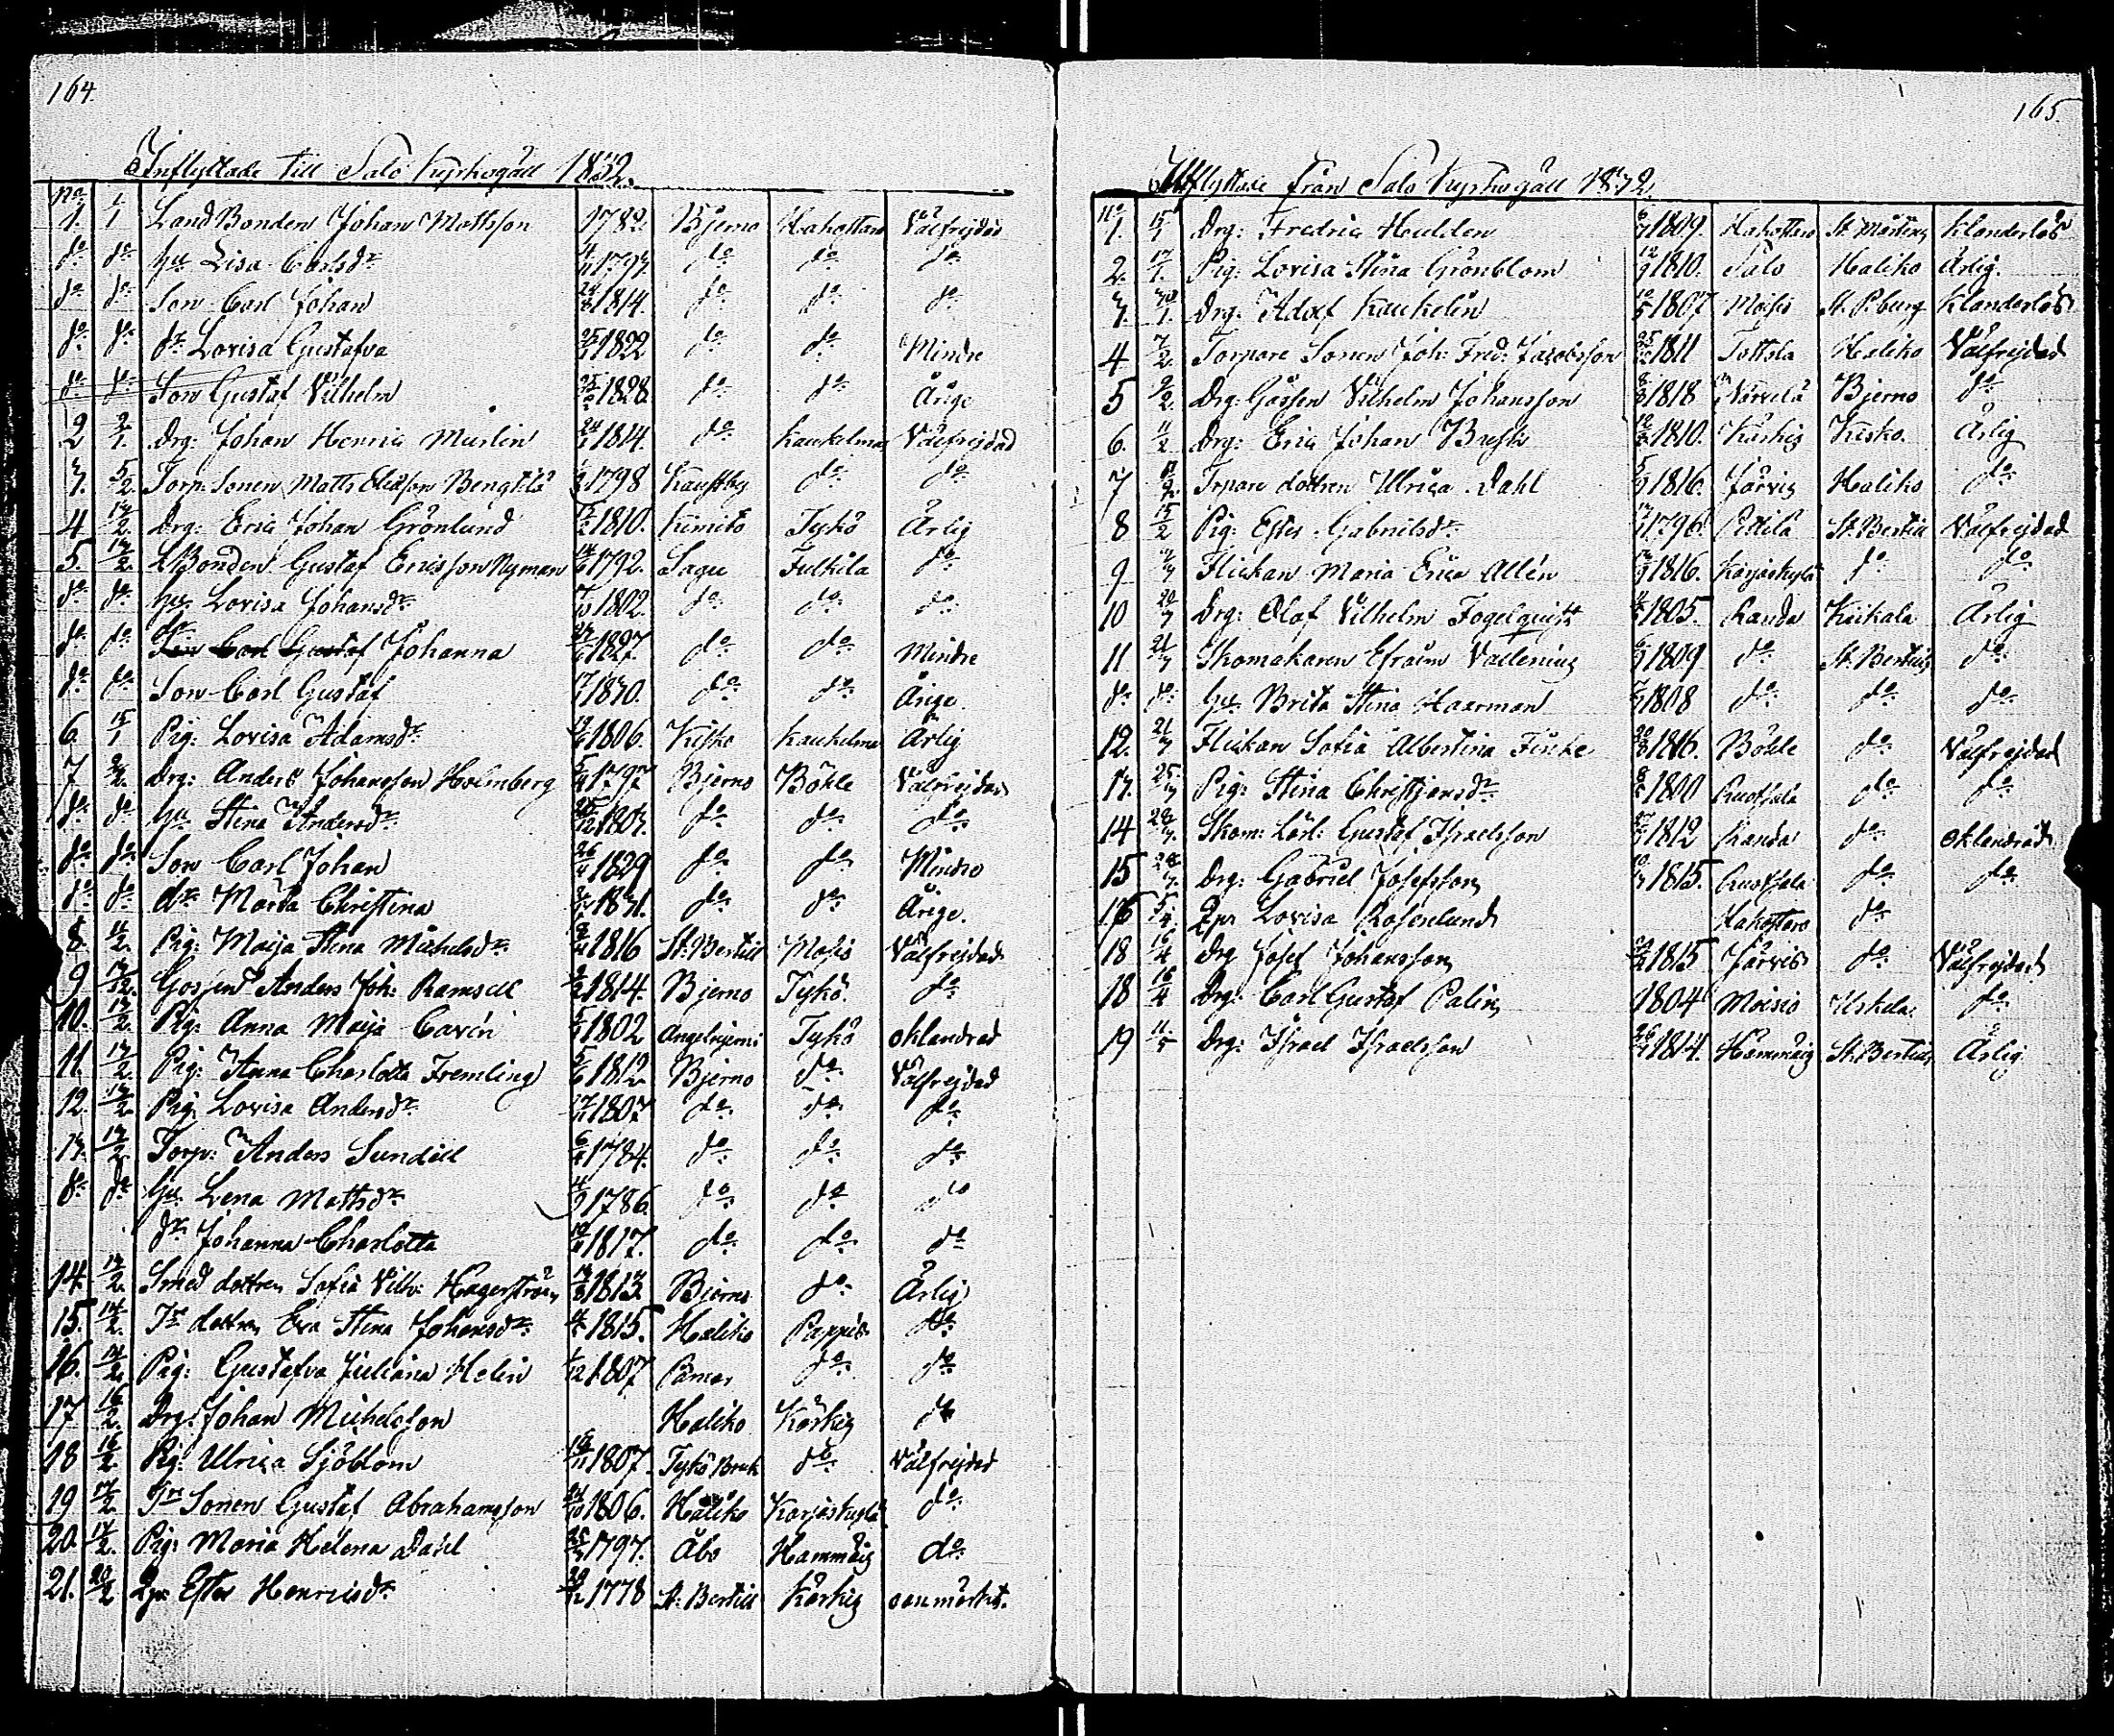 164.
Inflyttade till Salo Kyrkogäll 1832.
No
1. 1/1 LandBonden Johan Mattsson 1782. Bjerno Hakottaro Välfrejdad
do do hu Lisa Carlsdr 1797. do do do
do do Son Carl Johan 24/8 1814. do do do
do do dr Lovisa Gustafva 25/1 1822 do do Mindre
do do Son Gustaf Vilhelm 25/2 1828 do do Årige
2 2/1. Drg: Johan Henric Murlin 24/1 1814. do Kaukelmaa Välfrejdad
3. 5/2. Torp: Sonen Matts Eliasson Bengtilä 1798 do do
4 13/2. Drg: Eric Johan Grönlund 1810. Kimito Tykö Ärlig
5. 13/2. LBonden Gustaf Ericsson Nyman 14/6 1792. Sagu Fulkila do
do do hu Lovisa Johansdr 1802. do do do
do do dr Johanna 1827. do do Mindre
do do Son Carl Gustaf 1830. do do Årige.
6. 15/1 Pig: Lovisa Adamsdr 1806. Kisko Kaukelma Ärlig
7 2/2. Drg: Anders Johansson Holmberg 1797 Bjerno Böhle Välfrejdad
do do hu Stina Andersdr 25/12 1803. do do do
do do Son Carl Johan 26/4 1829 do do Mindre
do do dr Maria Christina 1831. do do Årige.
8 11/2. Pig: Maija Stina Michelsdr 1816 St: Bertill Moisio Välfrejdad
9 13/2. Gossen Anders Joh: Ramsell 1814. Bjerno Tykö. do
10. 13/2. Pig: Anna Maija Cavén 1802 Angelniemi Tykö oklandrad
11. 13/2. Pig: Anna Charlotta Fremling 5/6 1812 Bjerno do Välfrejdad
12. 13/2. Pig: Lovisa Andersdr 1807 do do do
13. 13/2. Torp: Anders Sundell 1784. do do do
do do hu Lena Mattsdr 1786. do do do
dr Johanna Charlotta 1817. do do do
14. 13/2. Smed dottren Sofia Vilh: Hagerström 1813. Bjerno do Ärlig
15. 14/2. Tr dottren Eva Stina Johansdr 1815. Haliko Pappis do
16. 14/2. Pig: Gustafva Juliana Helin 1/12 1807 Pemar do do
17 16/2. Drg: Johan Michelsson Haliko Kärkis do
18 16/2. Pig: Ulrica Sjöblom 1807. Tykö Bruk do Välfrejdad
19 17/2. Tr Sonen Gustaf Abrahamsson 1806. Haliko Karjaskylä do
20. 17/2. Pig: Maria Helena Dahl 1797. Åbo Hammais do
21. 20/2 Ester Henricsdr 1778 St: Bertill Kärkis oanmärkt.
165.
Utflyttade från Salo Kyrkogäll 1832.
No
1. 15/1 Drg: Fredric Hedden 1809. Hakottaro St. Mårtens Klanderlös
2. 17/1. Pig: Lovisa Stina Grönblom 1810. Salo Haliko Ärlig.
3. Drg: Adolf Kaukelin 1807 Moisio St. P.burg Klanderlös
4 7/2. Torpare Sonen Joh: Fred: Jacobsson 1811 Tottola Haliko Välfrejdad
5 9/2. Drg: Gossen Vilhelm Johansson 1818 Varvelä Bjerno do
6. 11/2 Drg: Eric Johan Bresk 1810. Kärkis Kisko. Ärlig
7 Trpare dottren Ulrica Dahl 1816. Järvis Haliko do
8 15/2 Pig: Ester Gabrielsdr 1796. Pitilä St. Bertil Välfrejdad
9 Flickan Maria Erica Allén 1816. Karjaskylä do do
10 20/3 Drg: Olof Vilhelm Fogelquist 1805. Landa Kiikala Ärlig
11 21/3 Skomakaren Efraim Vallenius 1809 do St. Bertils do
do do hu Brita Stina Haarman 1808 do do do
12. 21/3 Flickan Sofia Albertina Finke 1816. Böhle do Välfrejdad
13. 25/3 Pig: Stina Christiansdr 1800 Ruotsala do do
14 28/3. Skom: Lärl: Gustaf Israelsson 1812 Landa do oklandrad
15 28/3. Drg: Gabriel Josefsson 1815. Ruotsala do do
16 5/4. Lovisa Rosenlund Hakottaro do
18 16/4 Drg Josef Johansson 1815 Järvis do Välfrejdad
18 16/4 Drg: Carl Gustaf Palin 1804 Moisio Uskela do
19 Drg: Israel Israelsson 1814. Hammais St. Bertils Ärlig